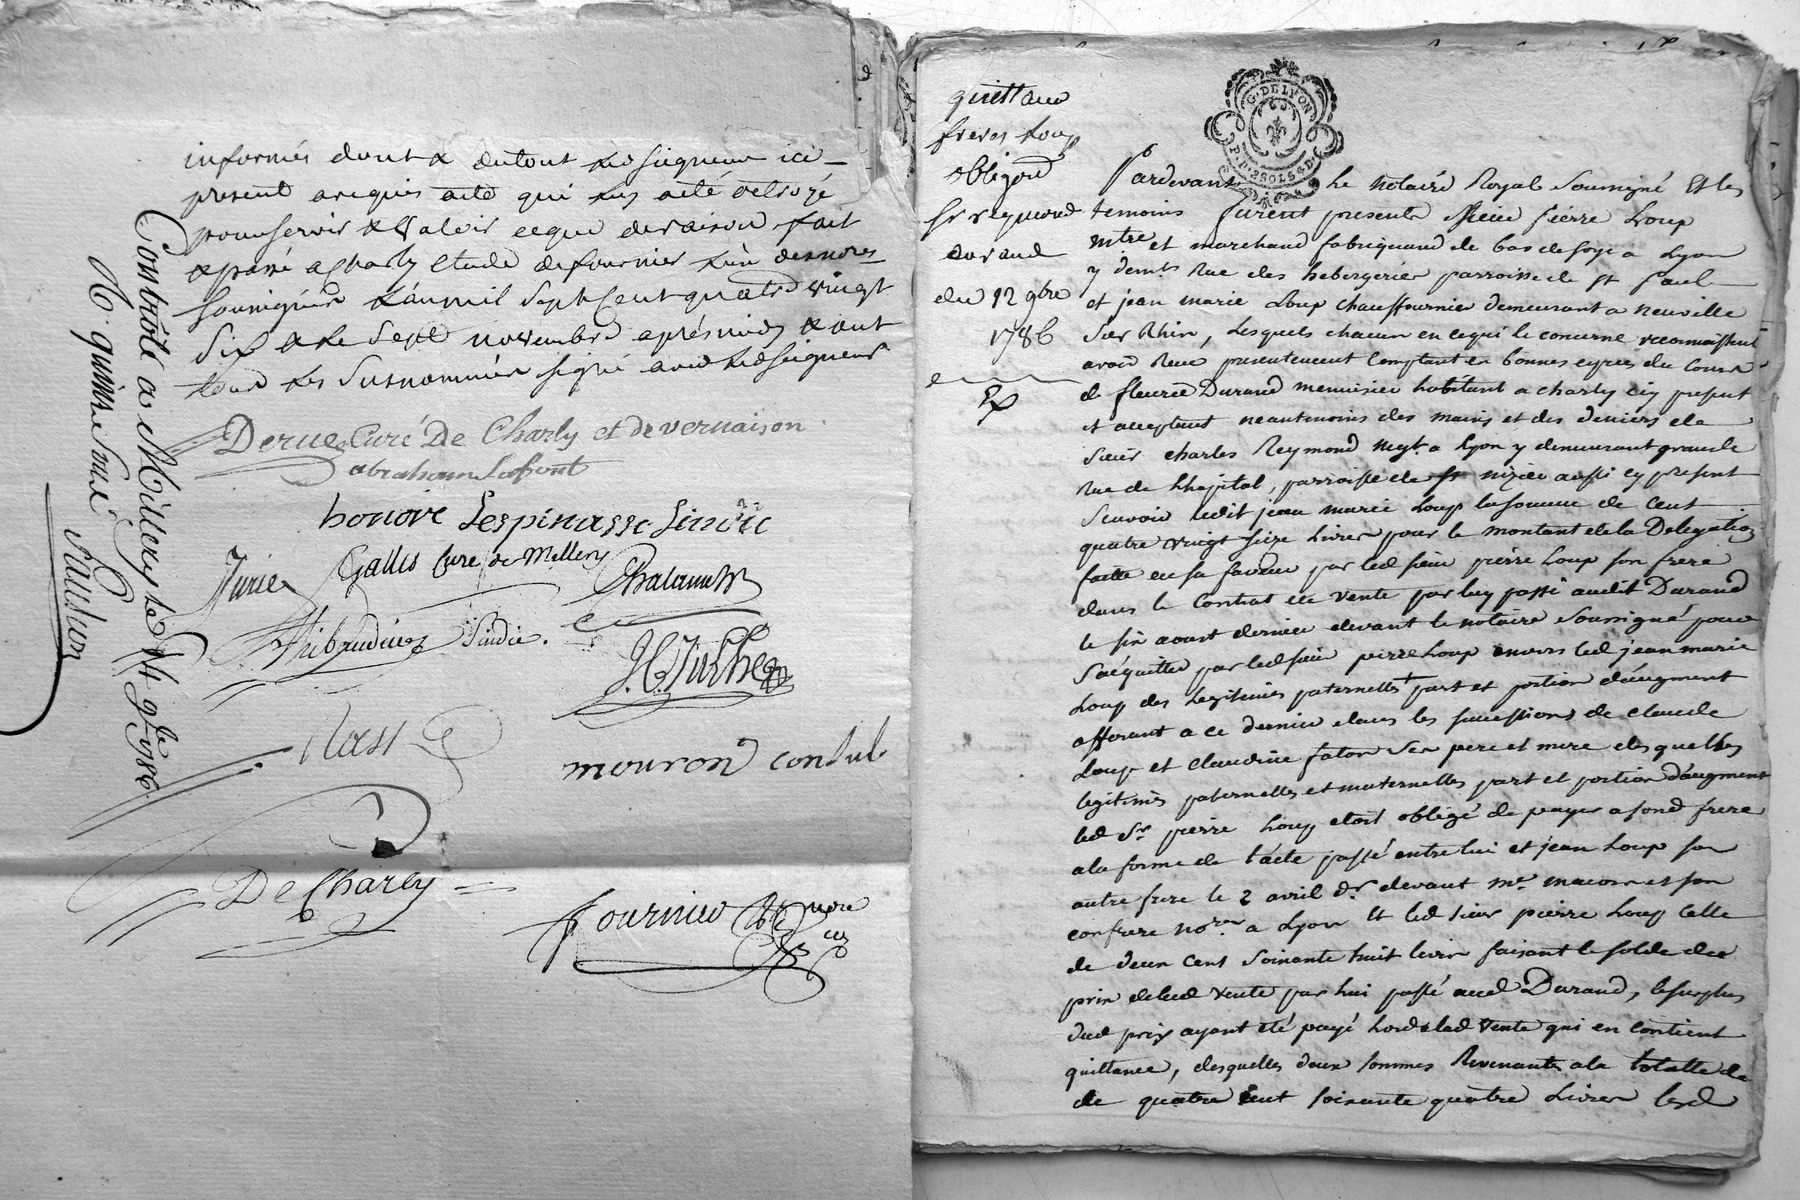 informés dont & du tout mond seigneur ici
present a requis acte qui lui a été octroyé
pour servir & valoir ce que de raison fait
& passé a Charly Etude de fournier l'un des nores
soussignés L'an mil Sept Cent quatre vingt
Six & le Sept novembre après midy & ont
tous les susnommés signé avec mond seigneur
Derue Curé De Charly et de vernaison
abraham Lafont
honoré Lespinasse Sindic
Jurie
Galles Curé de Millery
Thibaudier Sindic.
mouron consul
De Charly
fournier nore
Controlé a Millery le 14 9bre 1786
R. quinze sous
quitt aux
freres Loup
obligeons
Sr reymond
durand
du 12 9bre
1786
G. DE LYON
P.P. 2 SOLS 4 D.
Pardevant Le notaire Royal Soussigné Et les
temoins furent presents Sieur pierre Loup
mtre et marchand fabriquand de bas de soye a Lyon
y demt Rue des hebergeries parroisse de st Paul
et jean marie Loup chauffournier demeurant a neuville
Sur Rhin, Lesquels chacun en ce qui le concerne reconnaissent
avoir Recu presentement Comptant en bonnes especes du Cours
de fleurie Durand menuisier habitant a charly icy present
et acceptant neantmoins des mains et des deniers de
sieur charles Reymond negt a Lyon y demeurant grande
Rue de L'hopital, parroisse de st nizier aussi cy present
Scavoir ledit jean marie Loup la somme de cent
quatre vingt seize Livres pour le montant de la Delegation
faitte en sa faveur par led sieur pierre Loup son frere
dans le Contrat de vente par luy passé audit Durand
le six aoust dernier devant le notaire Soussigné pour
S'acquitter par led sieur pierre Loup envers led jean marie
Loup des legitimes paternelles part et portion d'augment
afferant a ce dernier dans les successions de claude
Loup et claudine faton ses pere et mere desquelles
legitimes paternelles et maternelles part et portion d'augment
led Sr pierre Loup etoit obligé de payer a sond frere
a la forme de l'acte passé entre lui et jean Loup son
autre frere le 2 avril dr devant me macors et son
confrere nores a Lyon Et led sieur pierre Loup Celle
de deux cent Soixante huit livres faisant le solde du
prix de lad vente par lui passé aud Durand, le surplus
dud prix ayant été payé Lors de lad vente qui en contient
quittance, desquelles deux sommes Revenantes a la totalle de
de quatre Cent soixante quatre Livres lesd